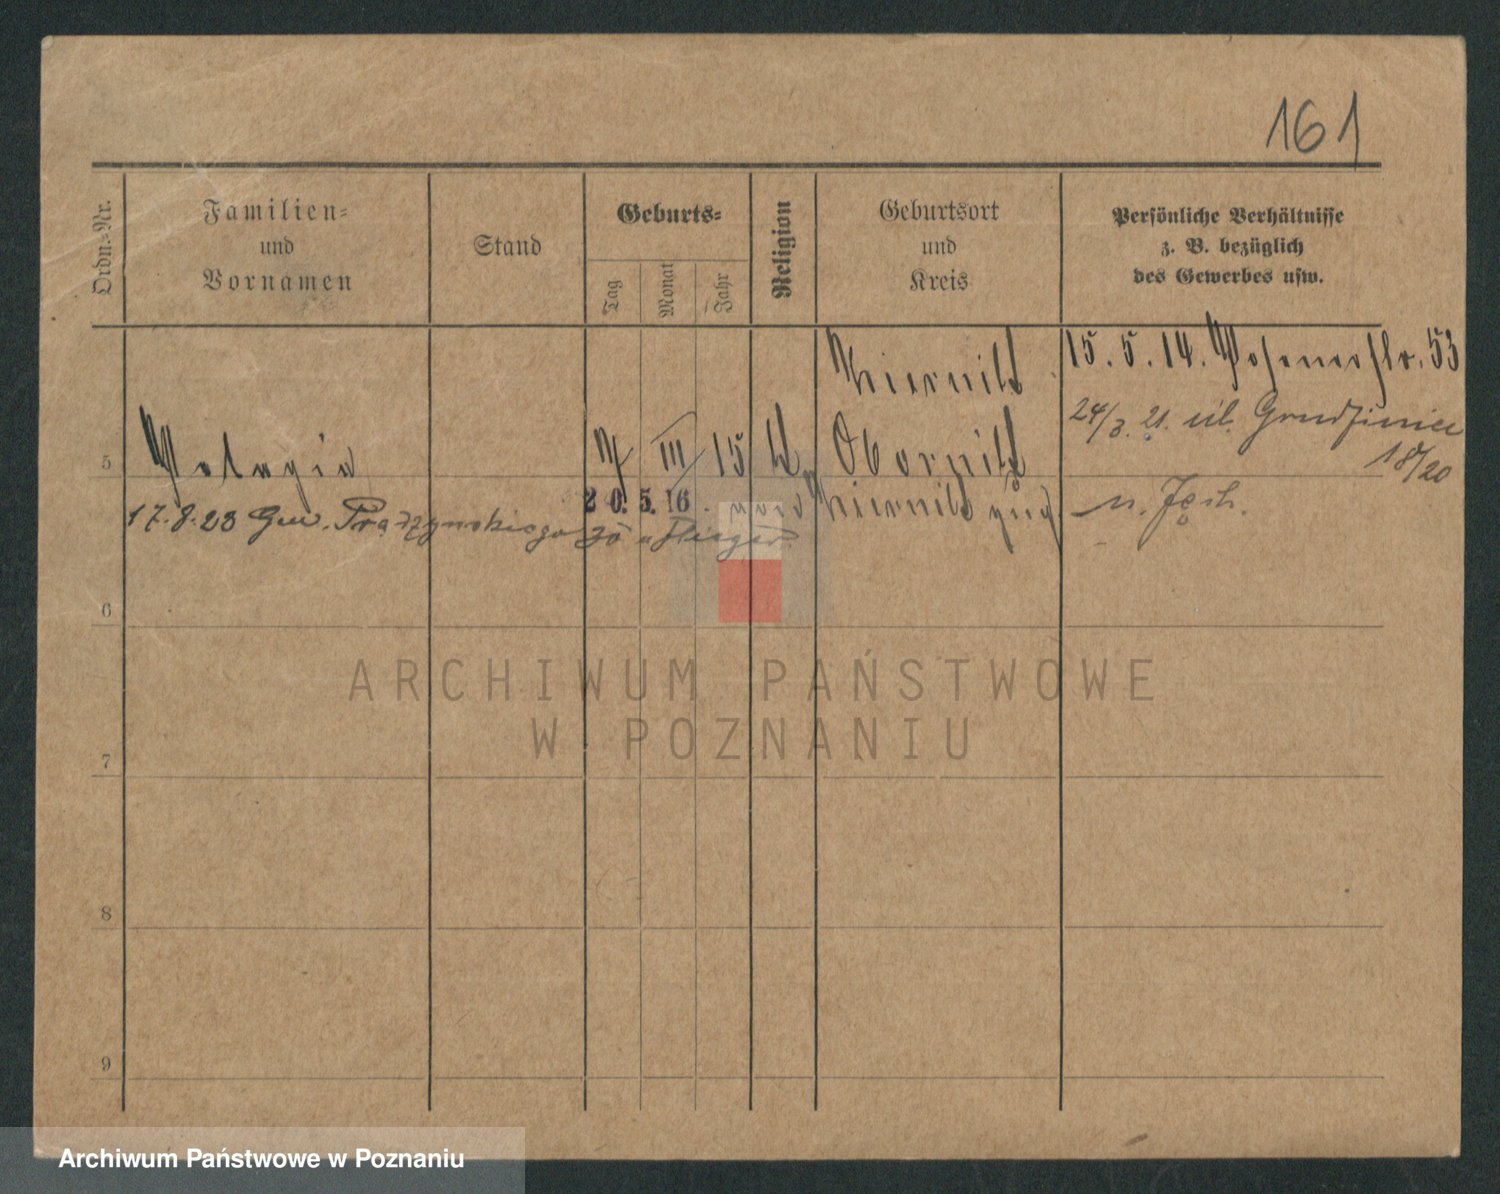 161
Ordn.-Nr.
Familien-
und
Vornamen
Stand
Geburts-
Tag
Monat
Jahr
Religion
Geburtsort
und
Kreis
Persönliche Verhältnisse
z. B. bezüglich
des Gewerbes usw.
15. 5. 14. Posenerstr. 53
24/3. 21. ul.
18/20
5 Pelagia III 15 Obornik
20. 5. 16. nach
17.8.23 Gen. Prądzyńskiego 30
6
7
8
9
ARCHIWUM PAŃSTWOWE
W POZNANIU
Archiwum Państwowe w Poznaniu